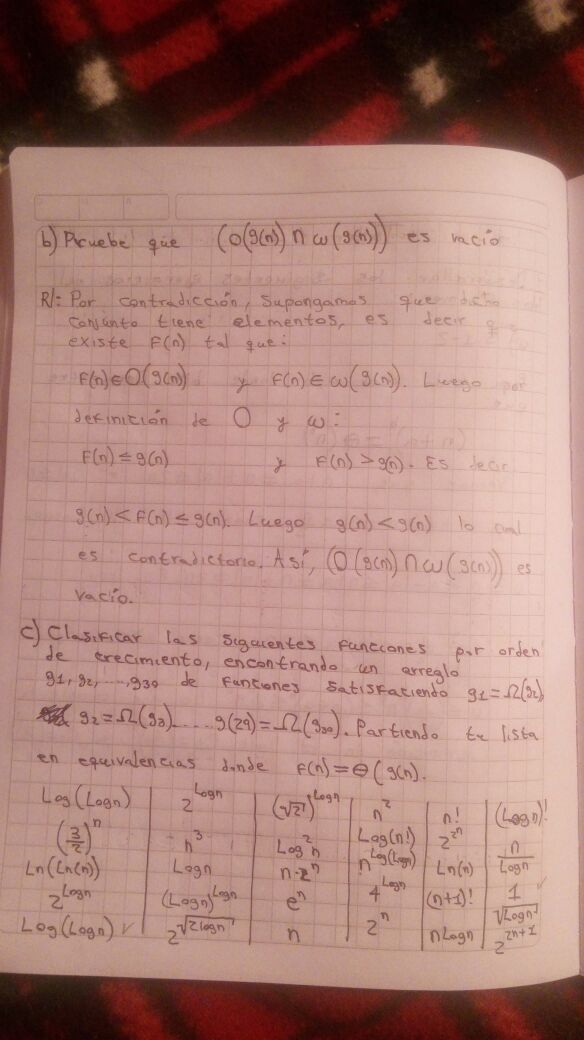 b) Pruebe que (O(g(n) ∩ ω(g(n))) es vacío
R/: Por contradicción, Supongamos que dicho
Conjunto tiene elementos, es decir que
existe F(n) tal que:
F(n)∈O(g(n)) y F(n)∈ω(g(n)). Luego por
definición de O y ω:
F(n)≤g(n) y F(n)>g(n). Es decir
g(n)<F(n)≤g(n). Luego g(n)<g(n) lo cual
es contradictorio. Así, (O(g(n)∩ω(g(n))) es
vacío.
c) Clasificar las siguientes funciones por orden
de crecimiento, encontrando un arreglo
g1, g2, ..., g30 de funciones satisfaciendo g1=Ω(g2),
g2=Ω(g3)....g(29)=Ω(g30). Partiendo tu lista
en equivalencias donde f(n)=Θ(g(n).
Log(Logn) | 2^Logn | (√2)^Logn | n^2 | n! | (Logn)!
(3/2)^n | n^3 | Log^2 n | Log(n!) | 2^2^n | n/Logn
Ln(Ln(n)) | Logn | n·2^n | n^Log(Logn) | Ln(n) | 1
2^Logn | (Logn)^Logn | e^n | 4^Logn | (n+1)! | √Logn
Log(Logn) ✓ | 2^√2logn | n | 2^n | nLogn | 2^2n+1